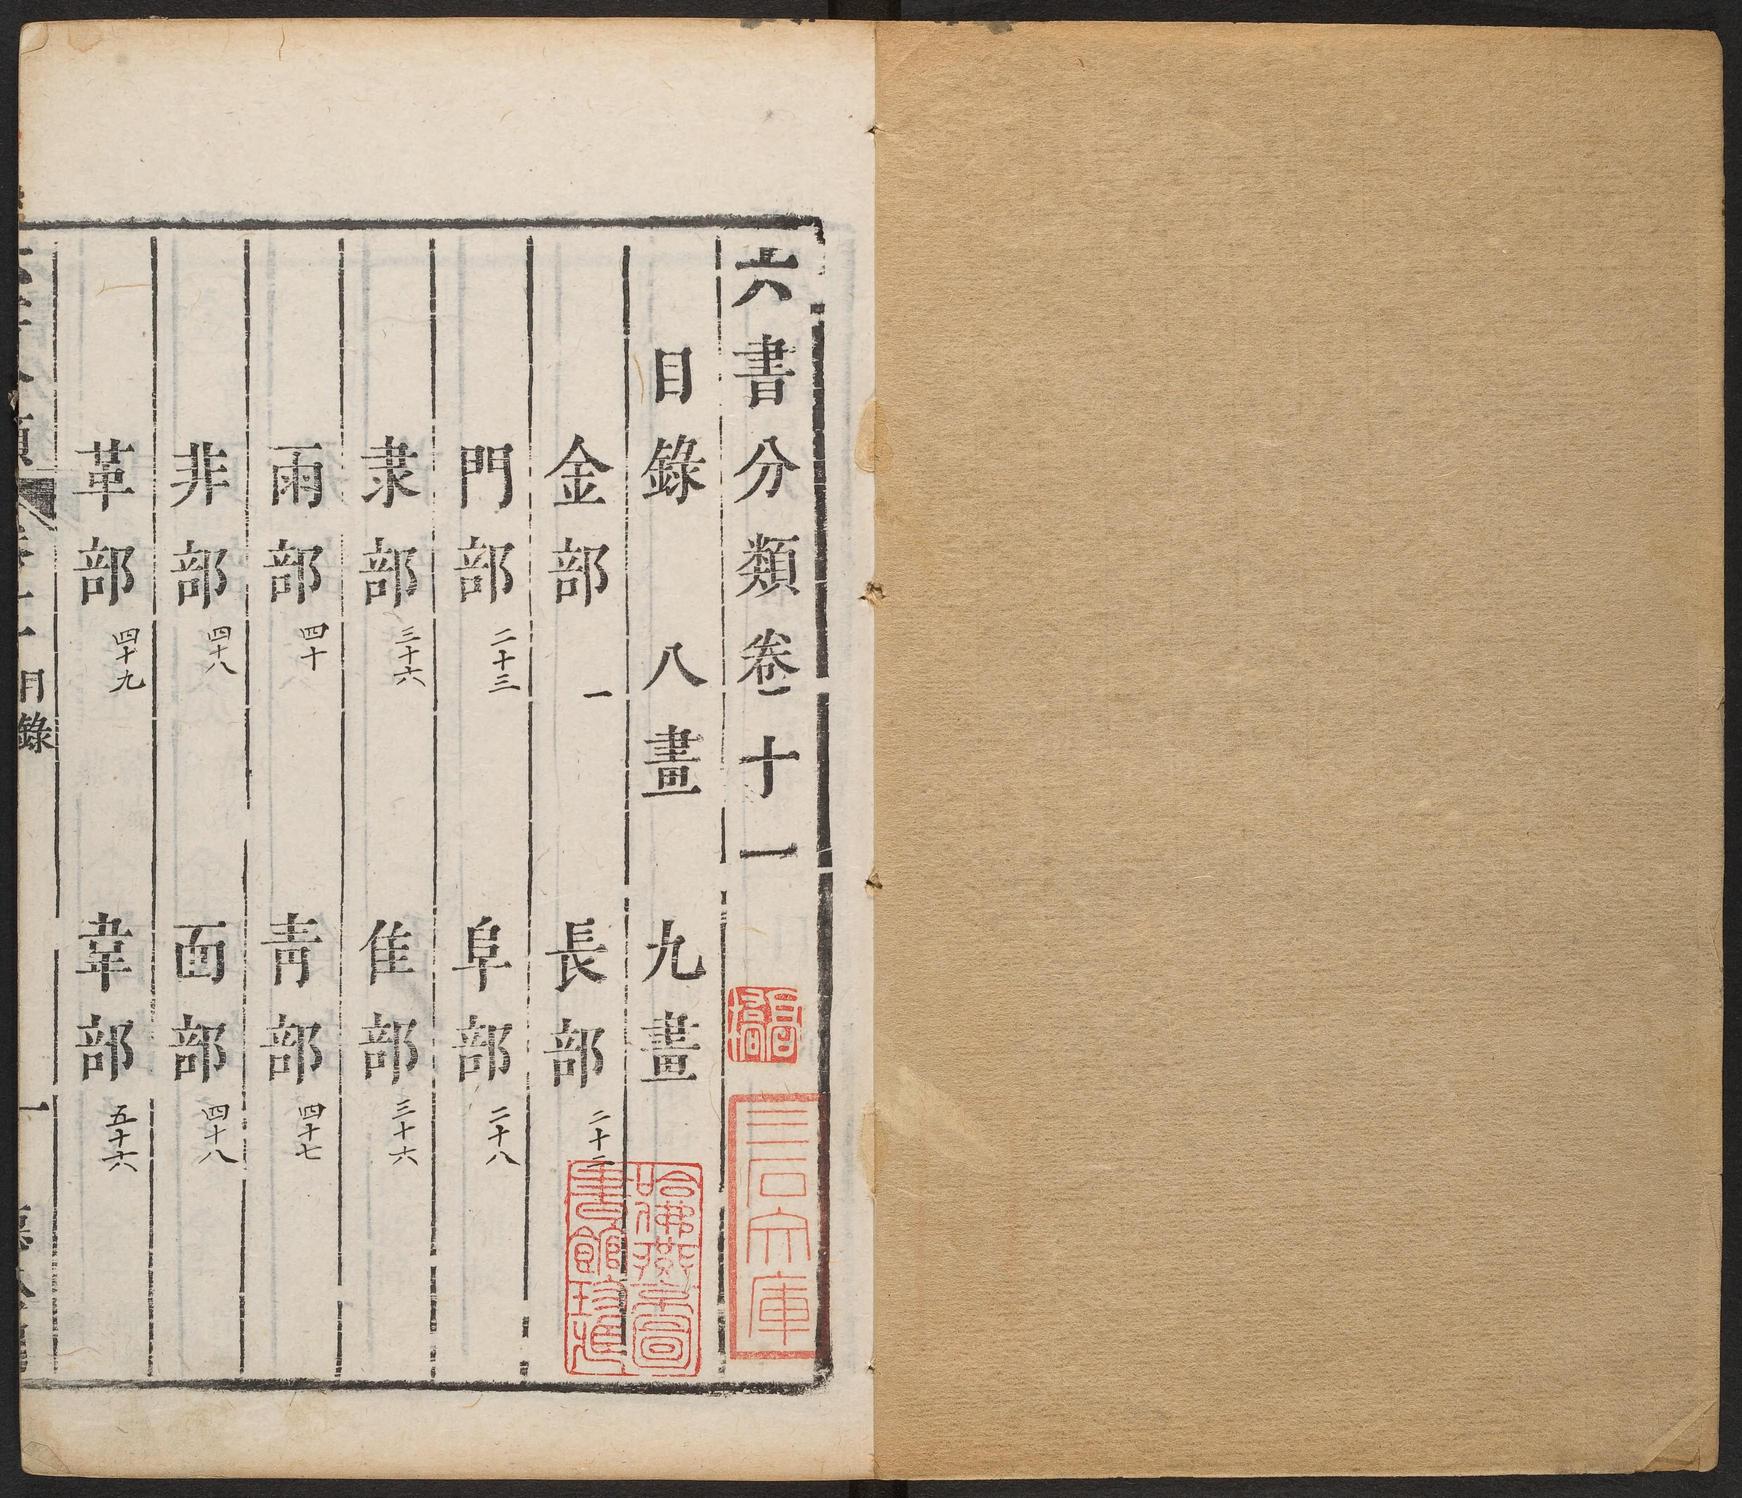 六書分類卷十一
目錄 八畫 九畫
金部 一 長部 二十二
門部 二十三 阜部 二十八
隶部 三十六 隹部 三十六
雨部 四十 靑部 四十七
非部 四十八 面部 四十八
革部 四十九 韋部 五十六
目錄 一
三石文庫
哈佛燕京圖
書館珍藏